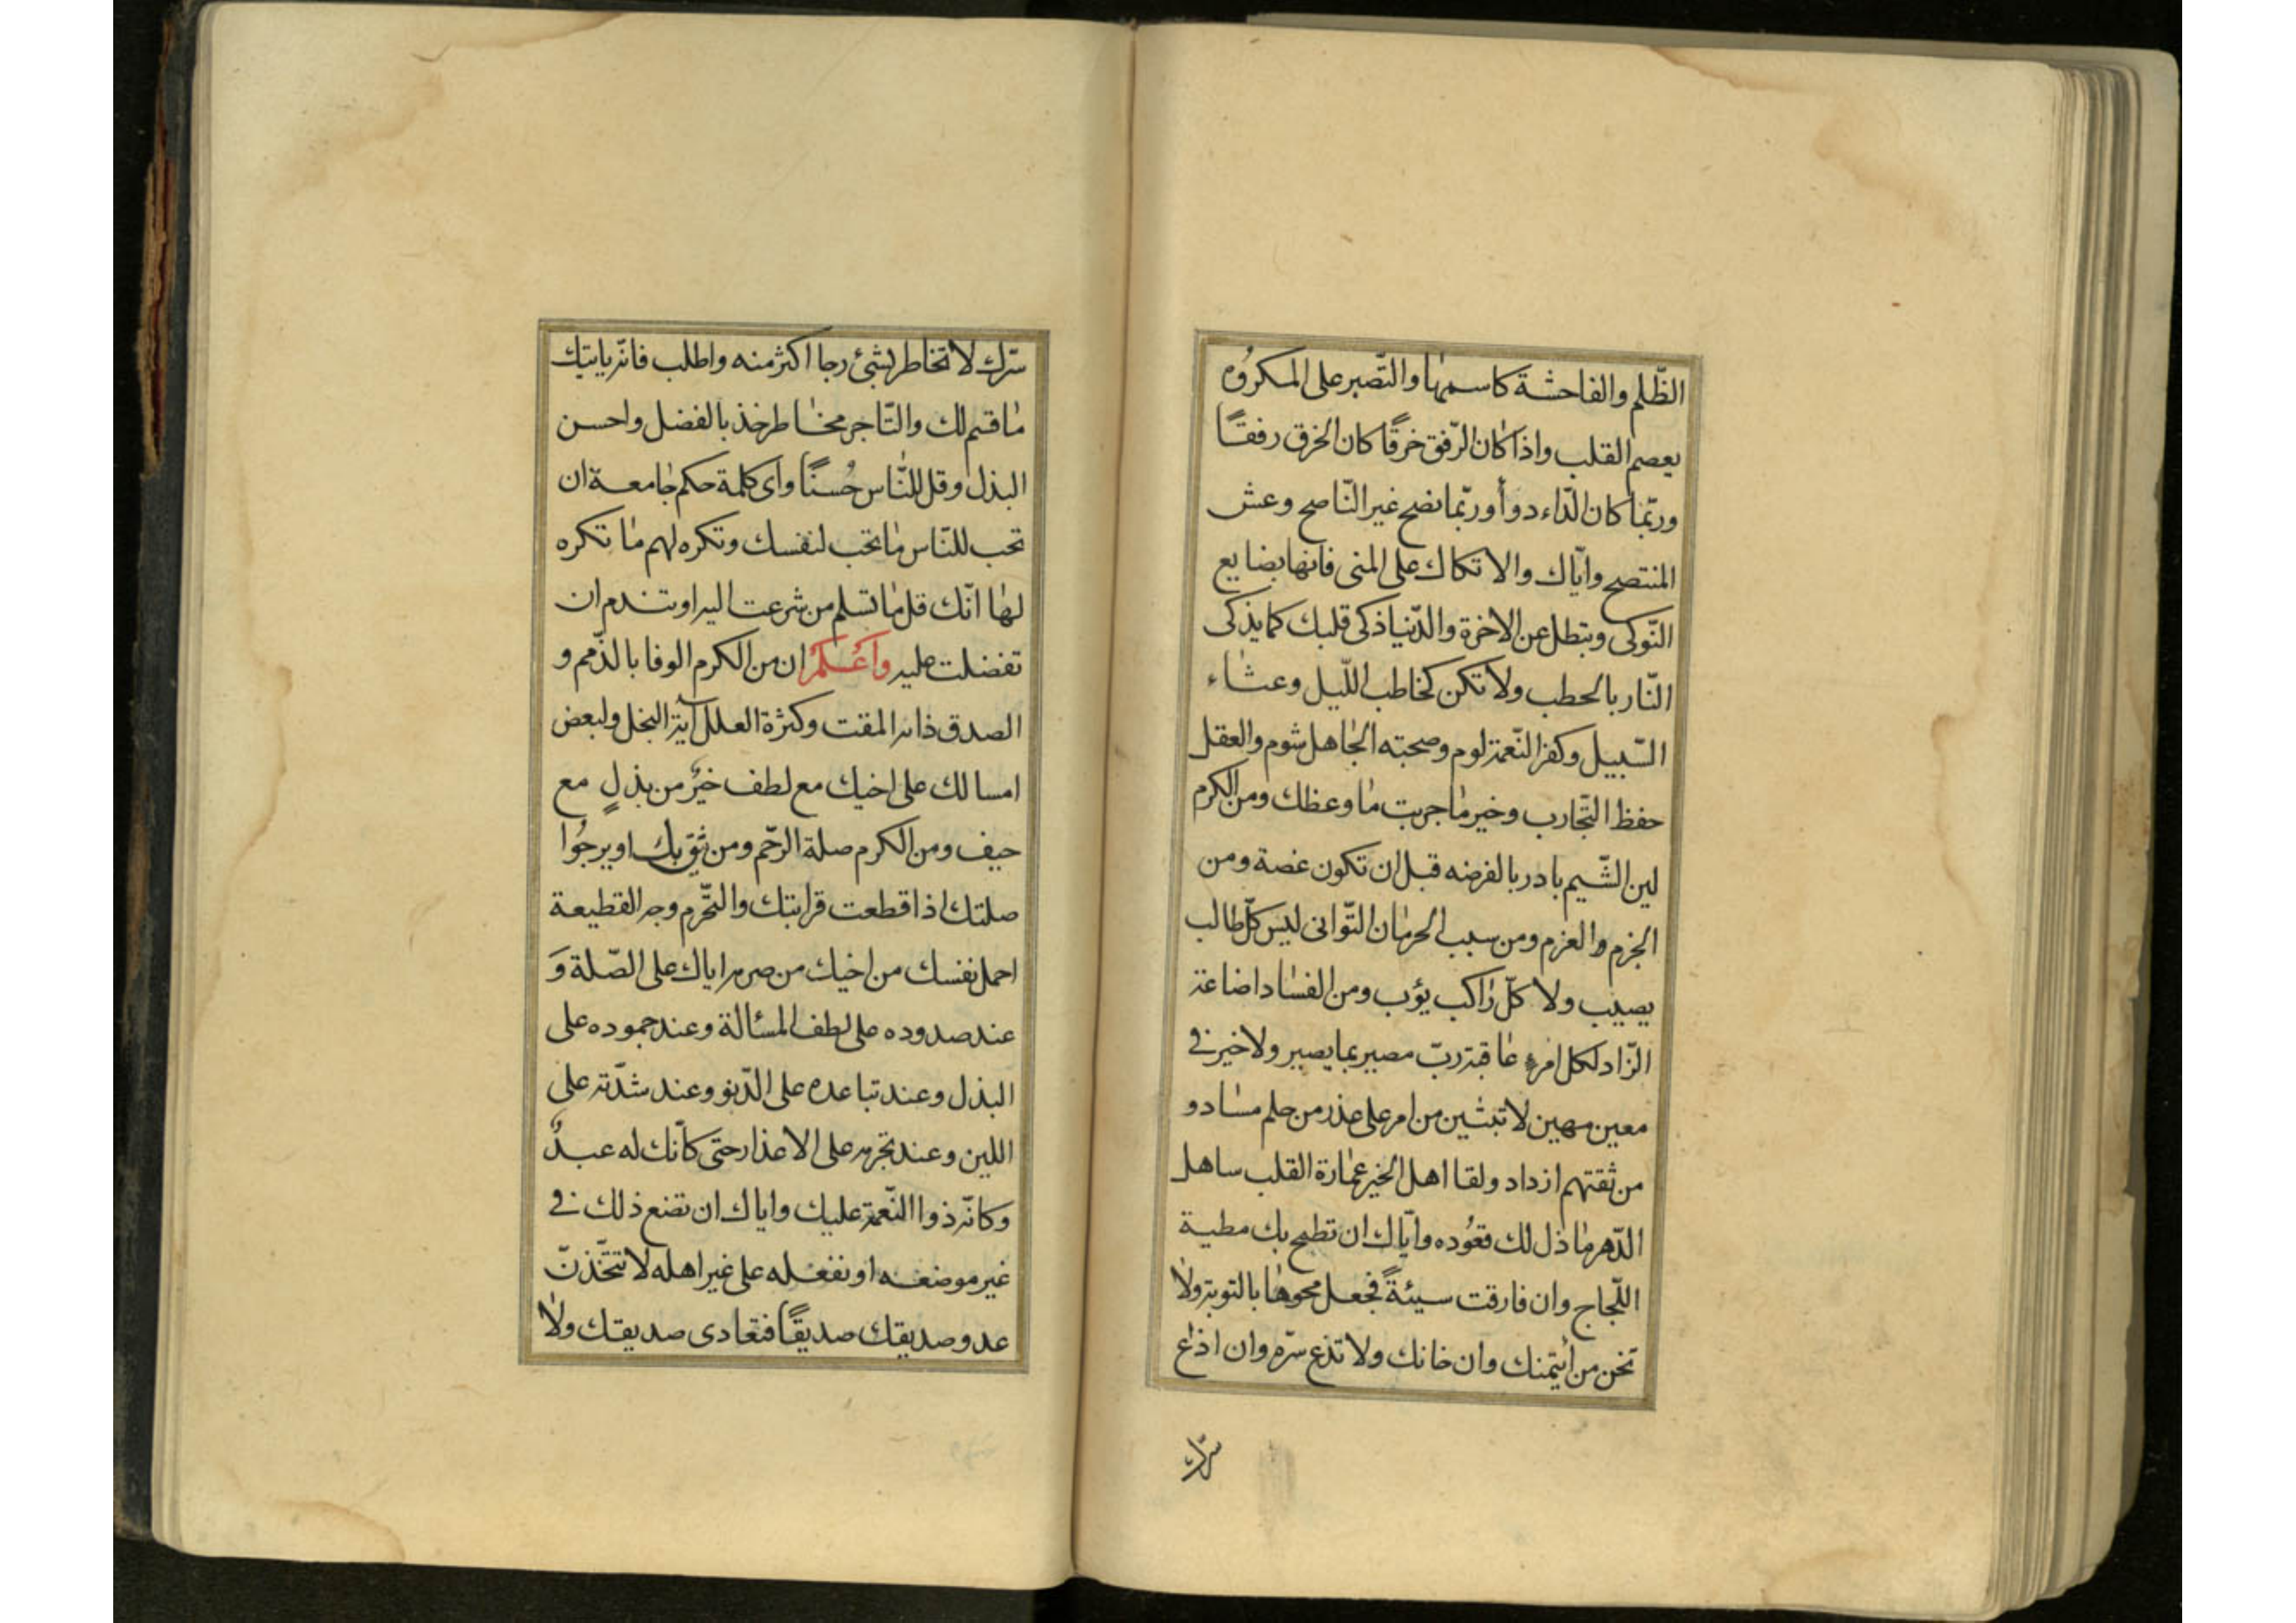 الظّلم والفاحشة كاسمها والتّصبر على المكروه
يعصم القلب واذا كان الرّفق خرقًا كان الخرق رفقًا
وربّما كان الدّاء دوأ وربّما نصح غير النّاصح وعش
المنتصح وايّاك والاتكاك على المنى فانها بضايع
النّوكى وبتطل عن الاخرة والدّنيا ذكى قلبك كما يذكى
النّار بالحطب ولا تكن كخاطب اللّيل وعثاء
السّبيل وكفر النّعمة لوم وصحبته الجاهل شوم والعقل
حفظ التّجارب وخير ما جربت ما وعظك ومن الكرم
لين الشّيم بادر بالفرضه قبل ان تكون غصة ومن
الجزم والعزم ومن سبب الحرمان التّوانى ليس كلّ طالب
يصيب ولا كلّ راكب يؤب ومن الفساد اضاعة
الزّاد لكل امرء عاقبة ربّ مصير بما يصير ولا خير فى
معين مهين لا تبثين من امر على عذر من حلم ساد و
من ثقتهم ازداد ولقا اهل الخير عمارة القلب ساهل
الدّهر ما ذل لك قعُوده وايّاك ان تطيح بك مطية
اللّجاج وان فارقت سيئةً فجعل محوها بالتوبة ولا
تخن من أيتمنك وان خانك ولا تذع سرّه وان اذاع
سرّك
سرّك لا تخاطر بشئ رجا اكثر منه واطلب فانّه ياتيك
ما قسم لك والتّاجر مخاطر خذ بالفضل واحسن
البذل وقل للنّاس حُسنًا واى كلمة حكم جامعة ان
تحب للنّاس ما تحب لنفسك وتكره لهم ما تكره
لها انّك قل ما تسلم من شرعت اليه او تندم ان
تفضلت عليه واعلم ان من الكرم الوفا بالذّمم و
الصدق ذاته المقت وكثرة العلل آية البخل ولبعض
امسالك على اخيك مع لطف خيرٌ من بذلٍ مع
حيف ومن الكرم صلة الرّحم ومن يثق بك او يرجُوا
صلتك اذا قطعت قرابتك والتّحرم وجه القطيعة
احمل نفسك من اخيك من صرمه اياك على الصّلة وَ
عند صدوده على لطف المسئالة وعند جموده على
البذل وعند تباعده على الدّنو وعند شدّته على
اللين وعند تجرمه على الاعذار حتى كانّك له عبدٌ
وكانّه ذوا النّعمة عليك واياك ان تضع ذلك فى
غير موضعه او تفعله على غير اهله لا تتّخذنّ
عدو صديقك صديقًا فتعادى صديقك ولا